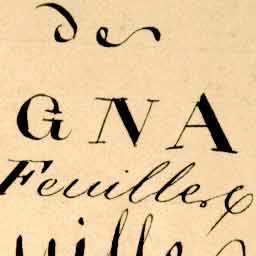 de
GNA
Feuille &
uille